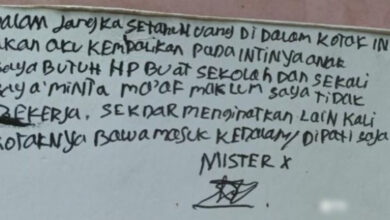 DALAM JANGKA SETAHUN UANG DI DALAM KOTAK IN
AKAN AKU KEMBALIKAN PADA INTINYA ANAK
SAYA BUTUH HP BUAT SEKOLAH DAN SEKALI
SAYA MINTA MA'AF MAKLUM SAYA TIDAK
BEKERJA, SEKDAR MENGINATKAN LAIN KALI
KOTAKNYA BAWA MASUK KEDALAM/DIPATI SAJA
MISTER X